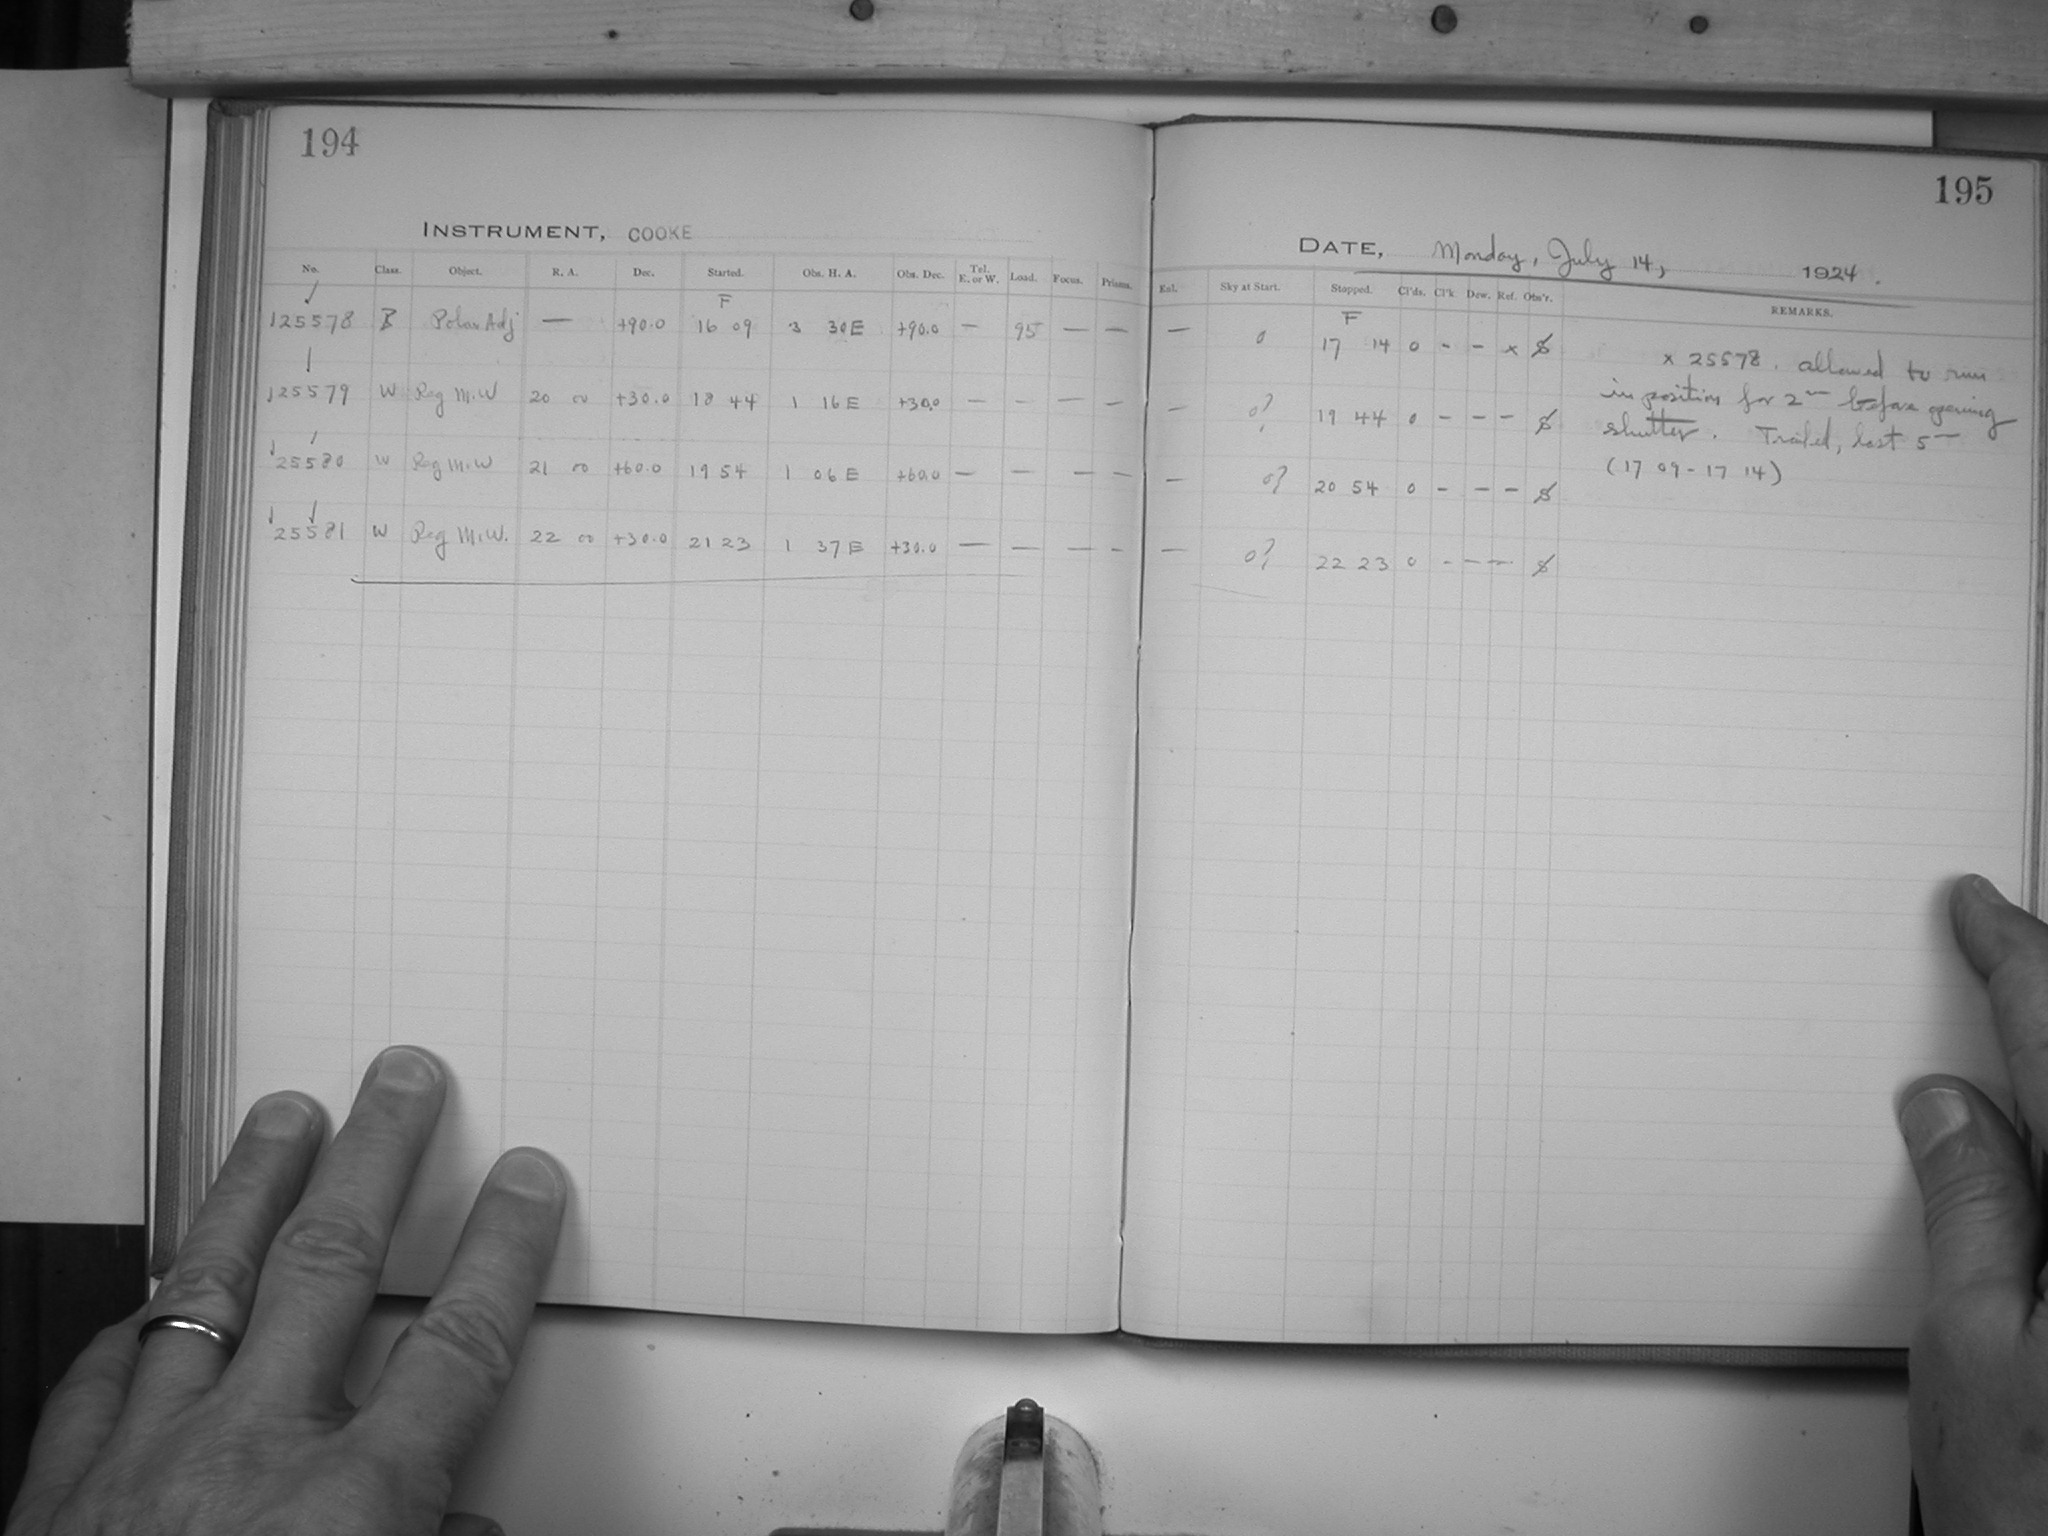 194
INSTRUMENT, COOKE
No. Class. Object. R. A. Dec. Started. Obs. H. A. Obs. Dec. Tel. E. or W. Load. Focus. Prisms.
F
I25578 B Polar Adj — +90.0 16 09 3 30E +90.0 — 95 — —
I25579 W Reg M.W 20 00 +30.0 18 44 1 16E +30.0 — — — —
I25580 W Reg M.W 21 00 +60.0 19 54 1 06E +60.0 — — — —
I25581 W Reg M.W. 22 00 +30.0 21 23 1 37E +30.0 — — — —
195
DATE, Monday, July 14, 1924.
Enl. Sky at Start. Stopped. Cl'ds. Cl'k. Dew. Ref. Obs'r. REMARKS.
F
— 0 17 14 0 - - x
— 0? 19 44 0 - - -
— 0? 20 54 0 - - -
— 0? 22 23 0 - - -
x 25578. allowed to run
in position for 2m before opening
shutter. Trailed, last 5m
(17 09 - 17 14)